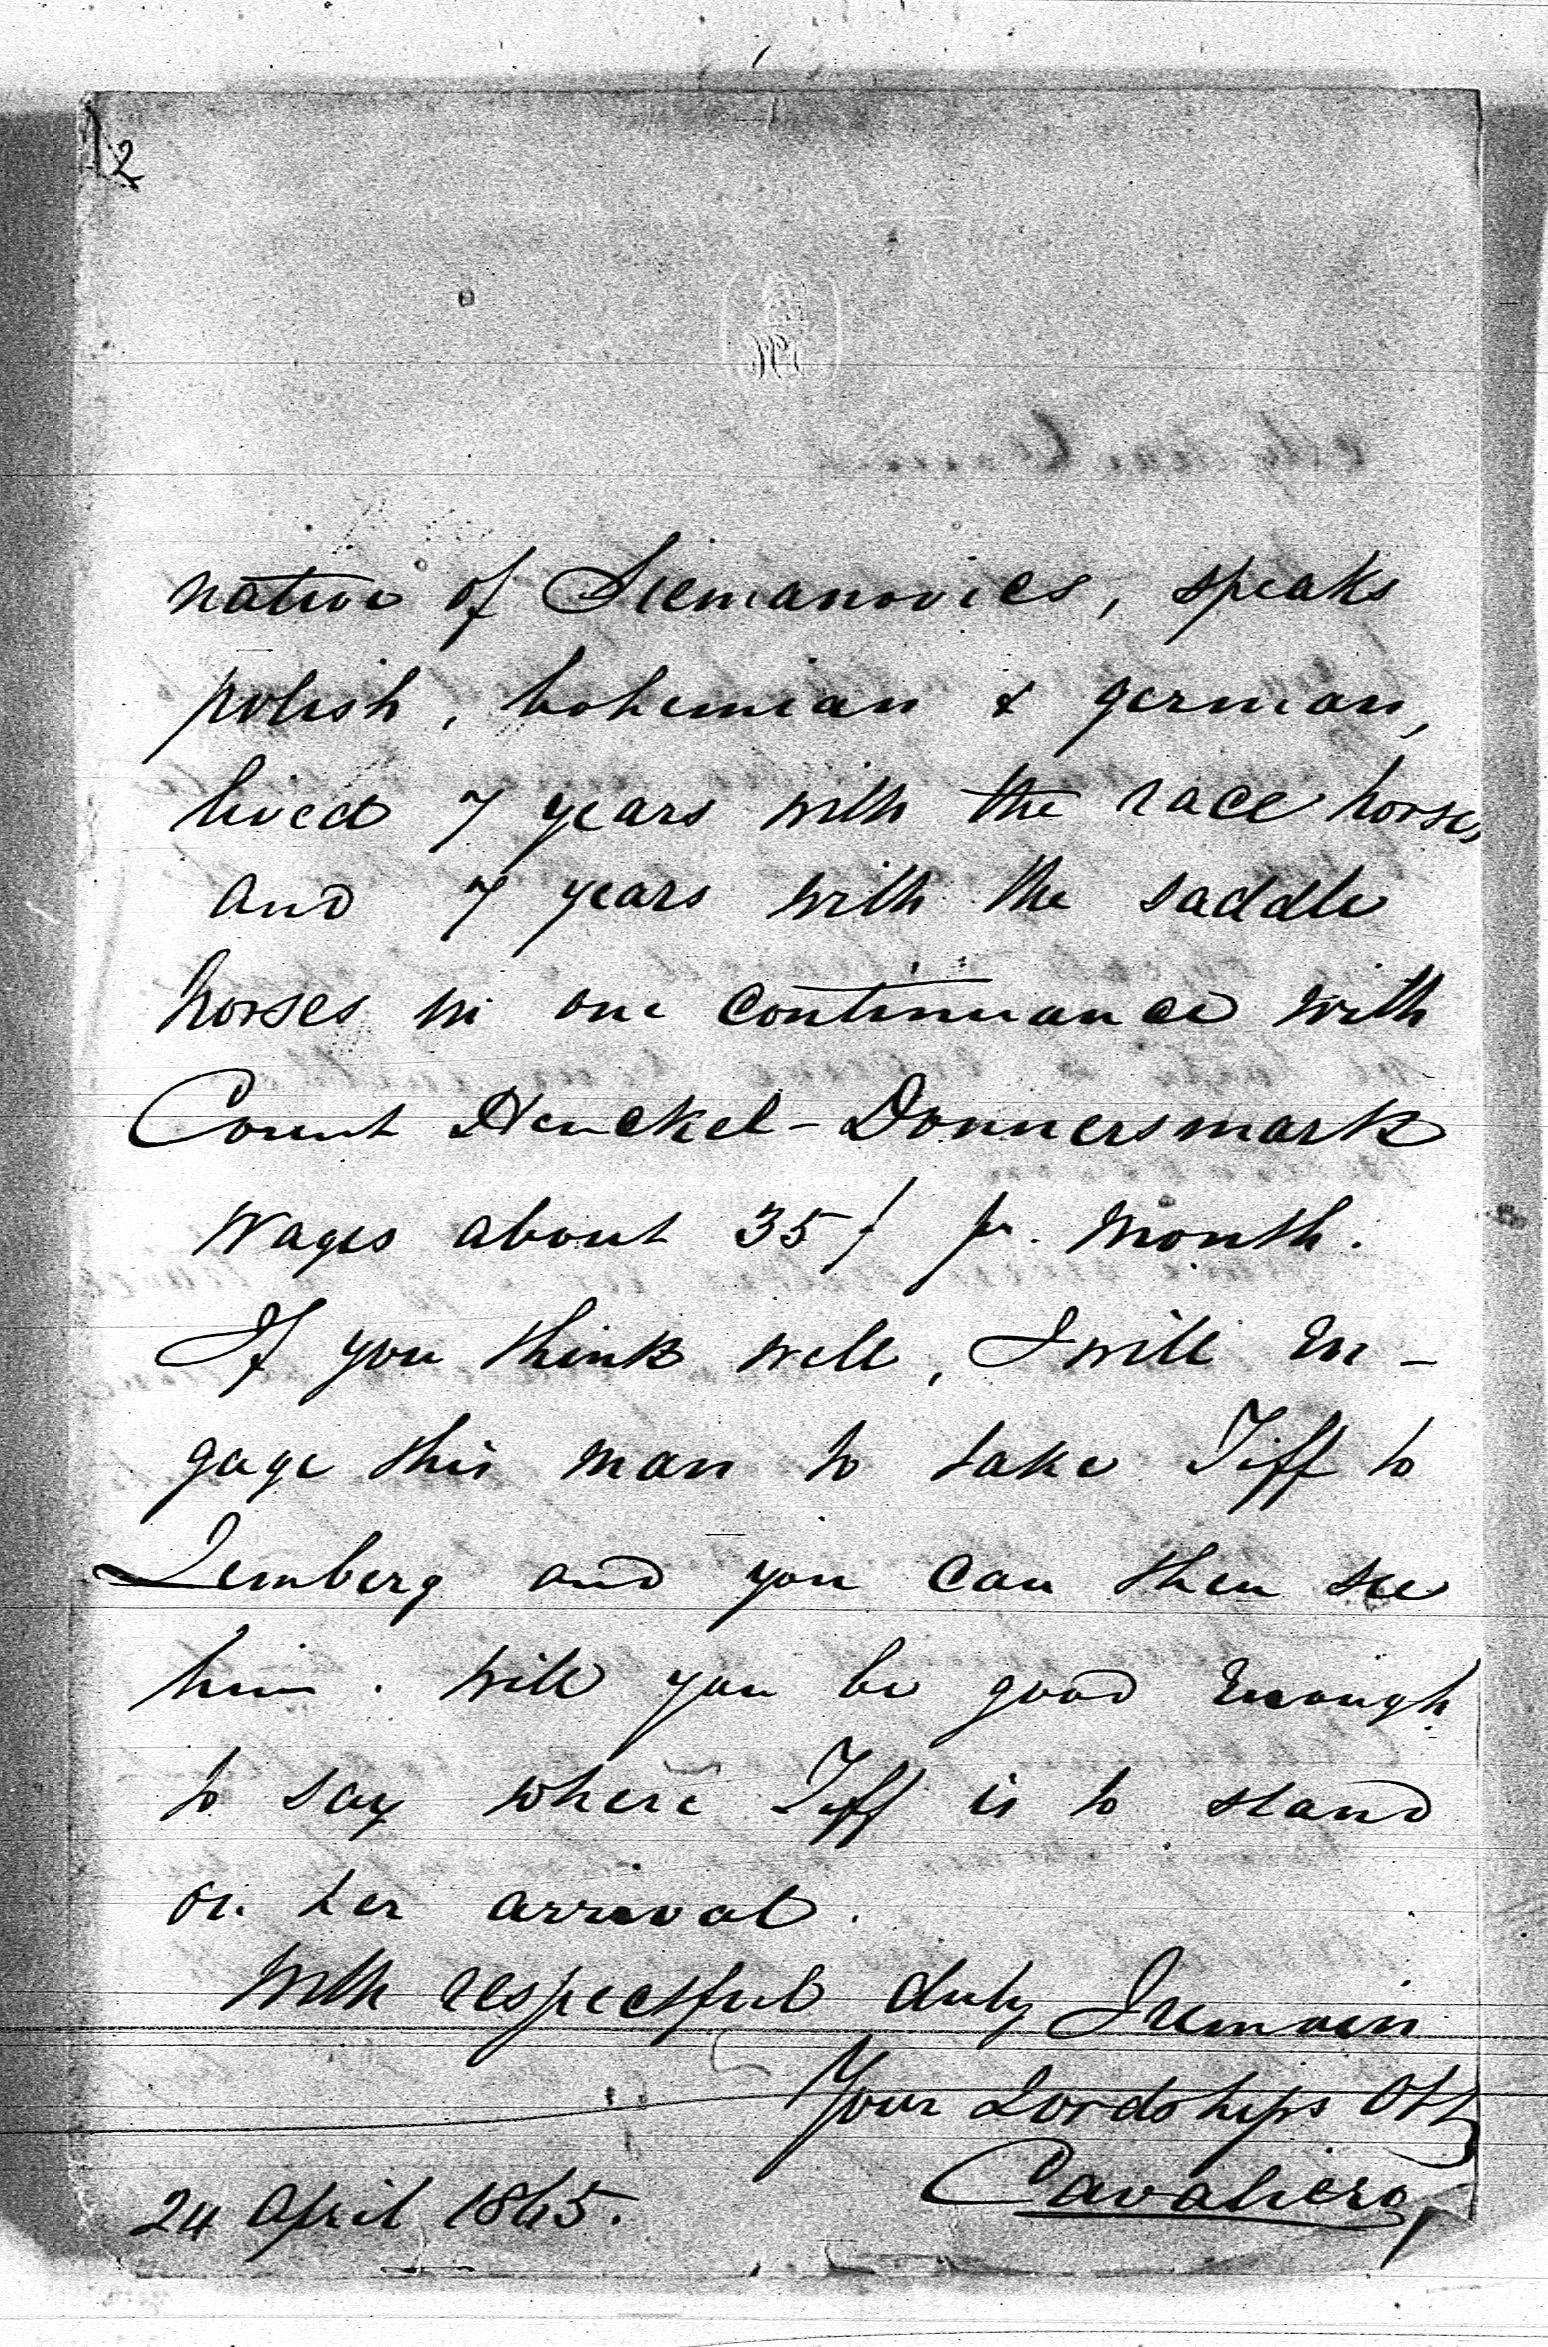 2
native of Siemanovics, speaks
polish, bohemian & german,
lived 7 years with the race horses,
and 7 years with the saddle
horses in one continuance with
Count Henckel-Donnersmark
Wages about 35 f pr. Month.
If you think well, I will en-
gage this man to take Tiff to
Lemberg and you can then see
him. Will you be good Enough
to say where Tiff is to stand
on her arrival.
With respectful duty I remain
Your Lordships
Cavaliero
24 April 1865.